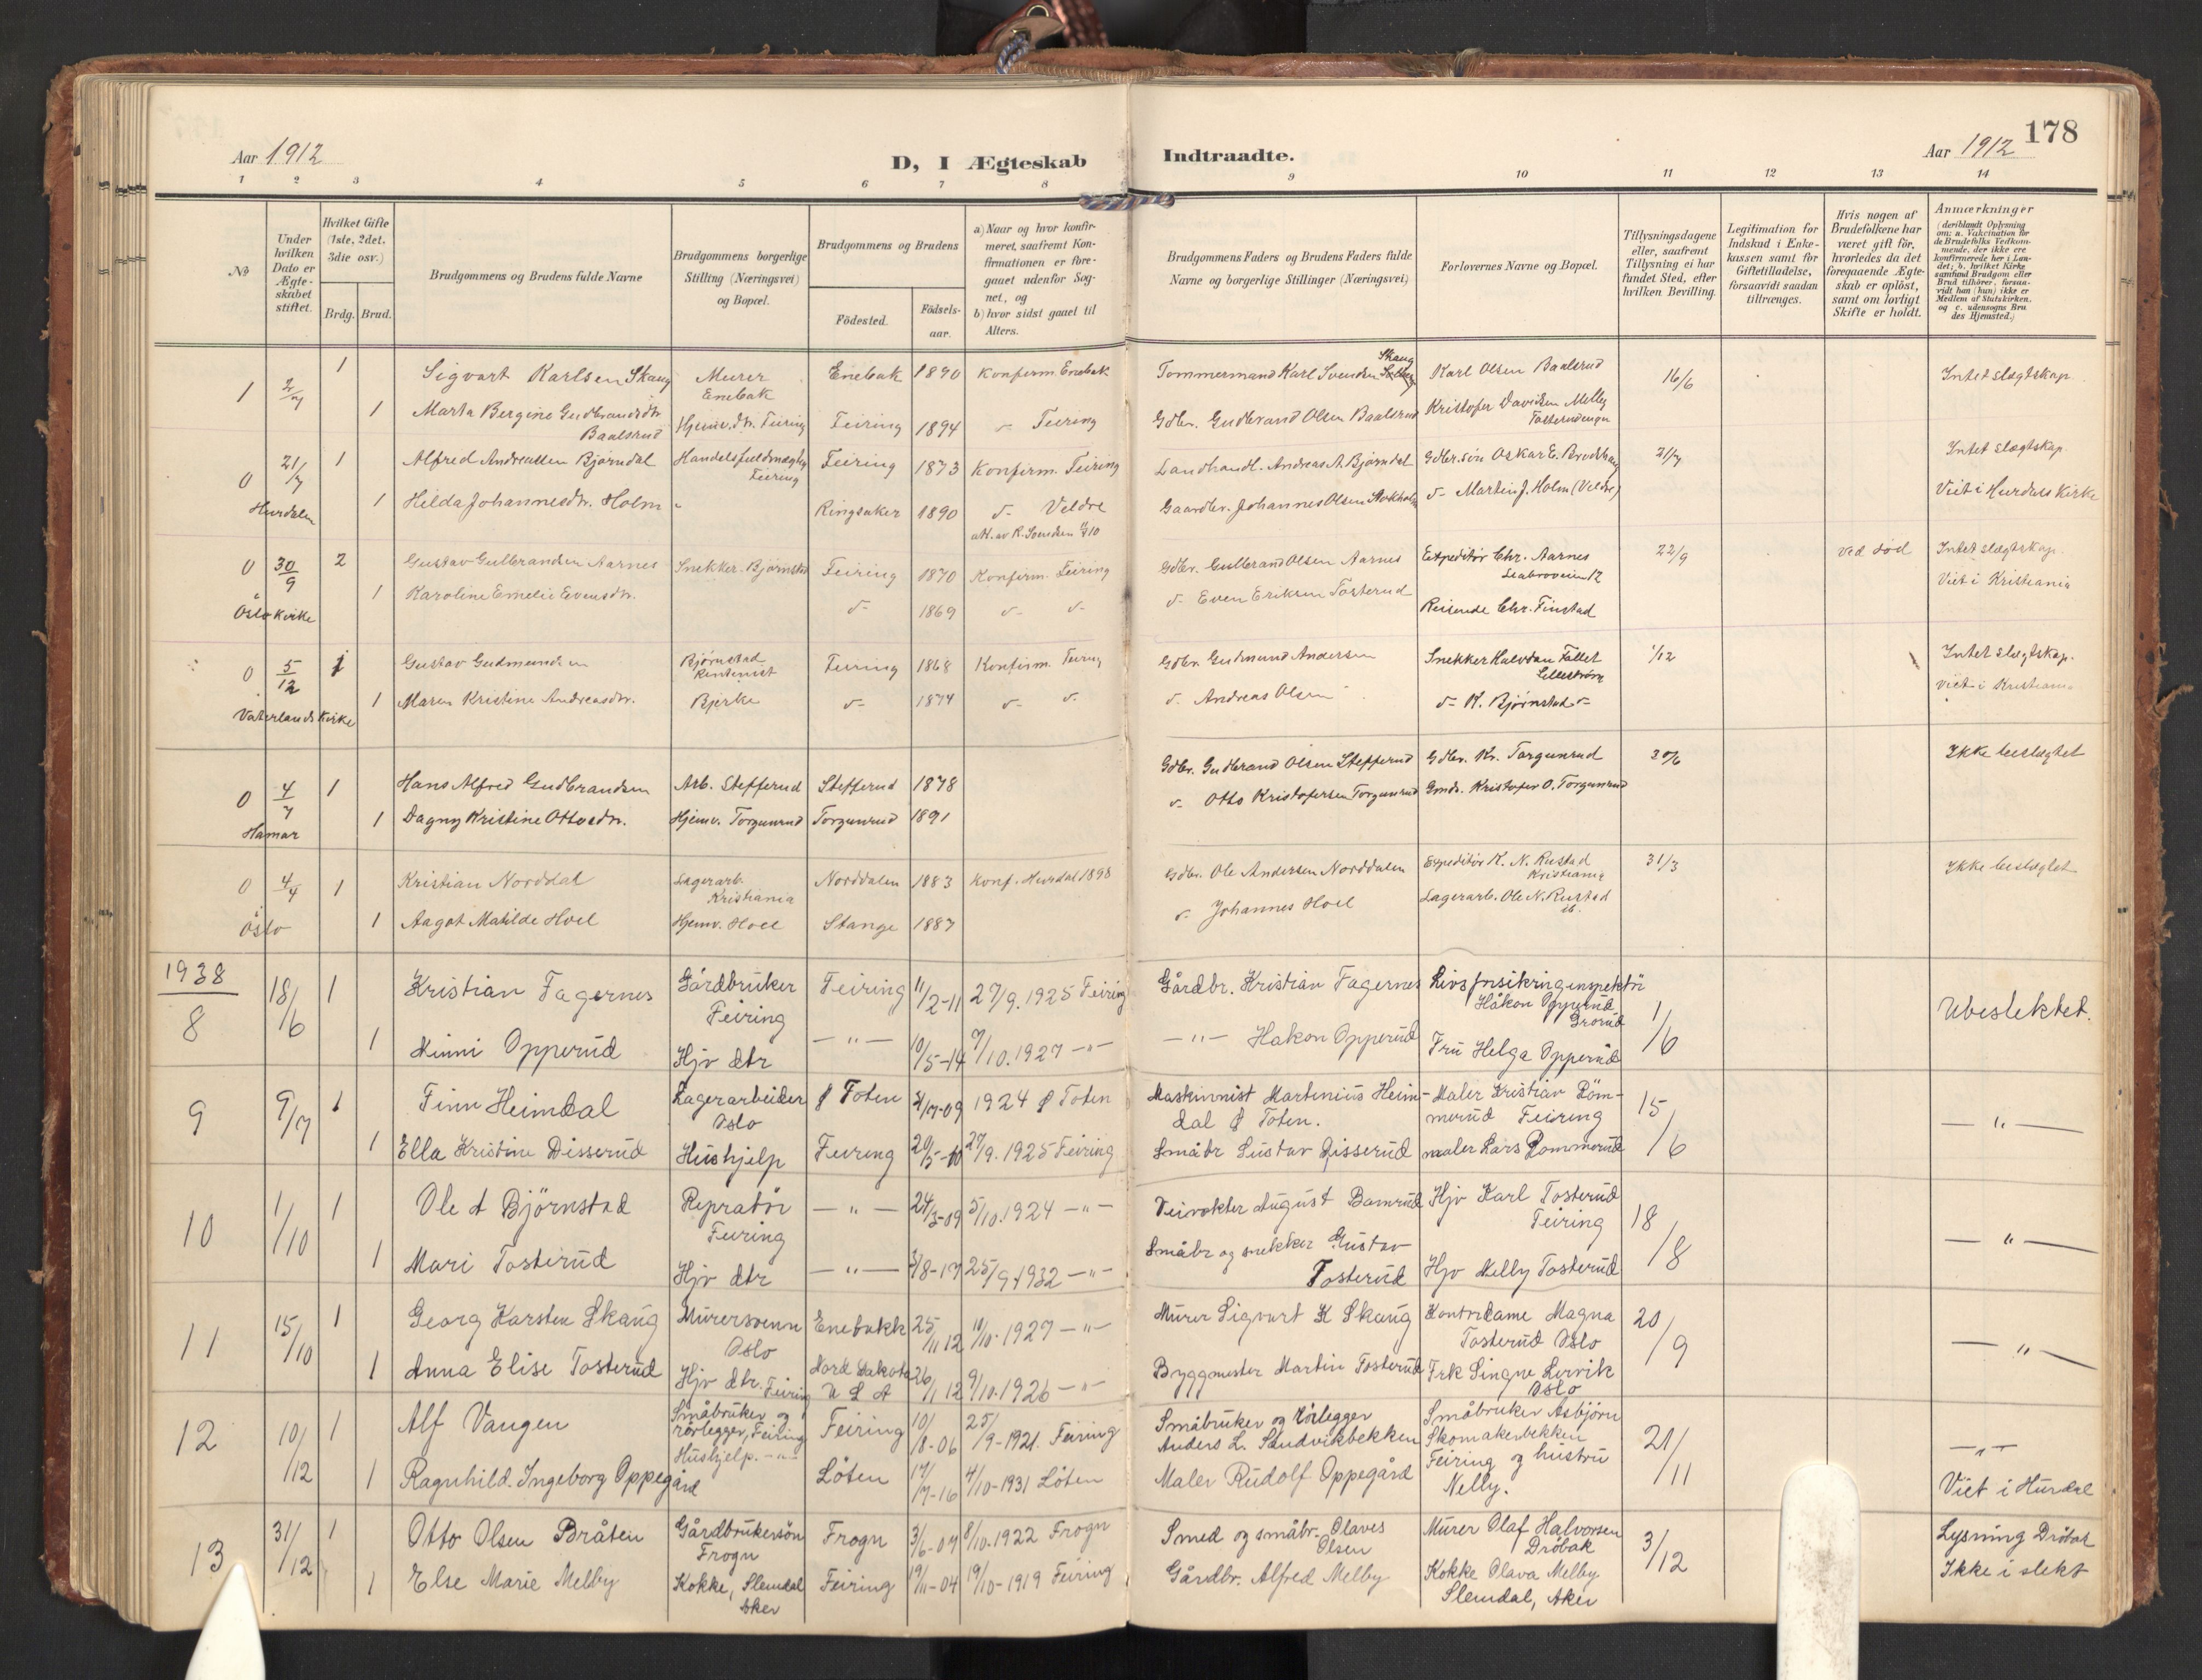 178
Aar 1912
D, I Ægteskab Indtraadte.
Aar 1912
1 2 3 4 5 6 7 8 9 10 11 12 13 14
No
Under hvilken Dato er Ægteskabet stiftet.
Hvilket Gifte (1ste, 2det, 3die osv.)
Brdg. Brud.
Brudgommens og Brudens fulde Navne
Brudgommens borgerlige Stilling (Næringsvei) og Bopæl.
Brudgommens og Brudens
Födested.
Födselsaar.
a) Naar og hvor konfirmeret, saafremt Konfirmationen er foregaaet udenfor Sognet, og
b) hvor sidst gaaet til Alters.
Brudgommens Faders og Brudens Faders fulde Navne og borgerlige Stillinger (Næringsvei)
Forlovernes Navne og Bopæl.
Tillysningsdagene eller, saafremt Tillysning ei har fundet Sted, efter hvilken Bevilling.
Legitimation for Indskud i Enkekassen samt for Giftetilladelse, forsaavidt saadan tiltrænges.
Hvis nogen af Brudefolkene har været gift för, hvorledes da det foregaaende Ægteskab er oplöst, samt om lovligt Skifte er holdt.
Anmærkninger
(deriblandt Oplysning om: a. Vakcination for de Brudefolks Vedkommende, der ikke ere konfirmerede her i Landet; b. hvilket Kirkesamfund Brudgom eller Brud tilhörer, forsaavidt han (hun) ikke er Medlem af Statskirken, og c. udensogns Brudes Hjemsted.)
1 2/7 1 Sigvart Karlsen Skaug Murer Enebak Enebak 1890 Konfirm. Enebak Tømmermand Karl Svendsen Skaug Karl Olsen Baalsrud 16/6 Intet slægtskap
1 Marta Bergine Gudbrandsdtr. Baalsrud Hjemv. dtr. Feiring Feiring 1894 Feiring Gdbr. Gudbrand Olsen Baalsrud Kristofer Davidsen Melby Tosterudengen
0 21/7 1 Alfred Andreassen Bjørndal Handelsfuldmægtig Feiring Feiring 1873 Konfirm. Feiring Landhandl. Andreas A. Bjørndal Gdbr.søn Oskar E. 21/7 Intet slægtskap
Hurdalen 1 Hilda Johannesdtr. Holm Ringsaker 1890 Veldre Gaardbr. Johannes Olsen Martin J. Holm (Veldre) Viet i Hurdals Kirke
0 30/9 2 Gustav Gulbrandsen Aarnes Snekker. Bjørnstad Feiring 1870 Konfirm. Feiring Gdbr. Gulbrand Olsen Aarnes Expeditør Chr. Aarnes 22/9 ved død Intet slægtskap.
Oslo Kirke 1 Karoline Emelie Evensdtr. 1869 Even Eriksen Tosterud Reisende Chr. Finstad Viet i Kristiania
0 5/12 1 Gustav Gudmundsen Bjørnstad Rentenist Feiring 1868 Konfirm. Feiring Gdbr. Gudmund Andersen Snekker Halvdan Fallet Lillestrøm 1/12 Intet slægtskap.
Vaterlands Kirke 1 Maren Kristine Andreasdtr. Bjerke 1874 Andreas Olsen K. Bjørnstad viet i Kristiania
0 4/7 1 Hans Alfred Gudbrandsen Arb. Stefferud Stefferud 1878 Gdbr. Gudbrand Olsen Stefferud Gdbr. Kr. Torgunrud 30/6 Ikke beslægtet
Hamar 1 Dagny Kristine Ottosdtr. Hjemv. Torgunrud Torgunrud 1891 Otto Kristofersen Torgunrud Gmds. Kristofer O. Torgunrud
0 4/4 1 Kristian Norddal Lagerarb. Kristiania Norddalen 1883 Konf. Hurdal 1898 Gdbr. Ole Andersen Norddalen Expeditør K. N. Rustad Kristiania 31/3 Ikke beslægtet
Oslo 1 Aagot Matilde Hoel Hjemv. Hoel Stange 1887 Johannes Hoel Lagerarb. Ole N. Rustad ib.
1938
8 18/6 1 Kristian Fagernes Gårdbruker Feiring Feiring 11/2-11 27/9.1925 Feiring Gårdbr. Kristian Fagernes Livsforsikringinspektör Håkon Opperud Grorud 1/6 Ubeslektet.
1 Minni Opperud Hjv dtr — " — 10/5-14 9/10.1927 -"- — " — Hakon Opperud Fru Helga Opperud
9 9/7 1 Finn Heimdal Lagerarbeider Oslo Ø Toten 1924 Ø Toten Maskinnist Martenius Heimdal Ø Toten. Maler Kristian Römmerud Feiring 15/6 — " —
1 Ella Kristine Disserud Hushjelp Feiring 20/5-10 27/9.1925 Feiring Småbr Gustav Disserud maler Lars Römmerud
10 1/10 1 Ole A Björnstad Repratör Feiring — " — 24/3-09 5/10.1924 -"- Veivokter August Bamrud Hjv Karl Tosterud Feiring 18/8 — " —
1 Mari Tosterud Hjv dtr — " — 25/9.1932 -"- Småbr og snekker Gustav Tosterud Hjv Nelly Tosterud
11 15/10 1 Georg Karsten Skaug Murersvenn Oslo Enebakk 25/11 12 11/10.1927 -"- Murer Sigvart K Skaug Kontordame Magna Tosterud Oslo 20/9 — " —
1 Anna Elise Tosterud Hjv dtr. Feiring Nord Dakota U S A 26/11 12 9/10.1926 -"- Byggmester Martin Tosterud Frk Singne Lervik Oslo
12 10/12 1 Alf Vangen Småbruker og rörlegger, Feiring Feiring 10/8-06 25/9-1921. Feiring Småbruker og Rörlegger Anders L. Sandvikbekken Småbruker Asbjörn Skomakerbekken Feiring og hustru Nelly. 21/11 — " —
1 Ragnhild Ingeborg Oppegård Hushjelp. -"- Löten 17/7-16 4/10-1931 Löten Maler Rudolf Oppegård Viet i Hurdal
13 31/12 1 Otto Olsen Bråten Gårdbrukersön Frogn Frogn 3/6-07 8/10.1922 Frogn Smed og småbr. Olaves Olsen Murer Olaf Halvorsen Dröbak 3/12 Lysning Dröbak
1 Else Marie Melby Kokke, Slemdal Aker Feiring 19/11-04 19/10-1919 Feiring Gårdbr. Alfred Melby Kokke Olava Melby Slemdal, Aker Ikke i slekt